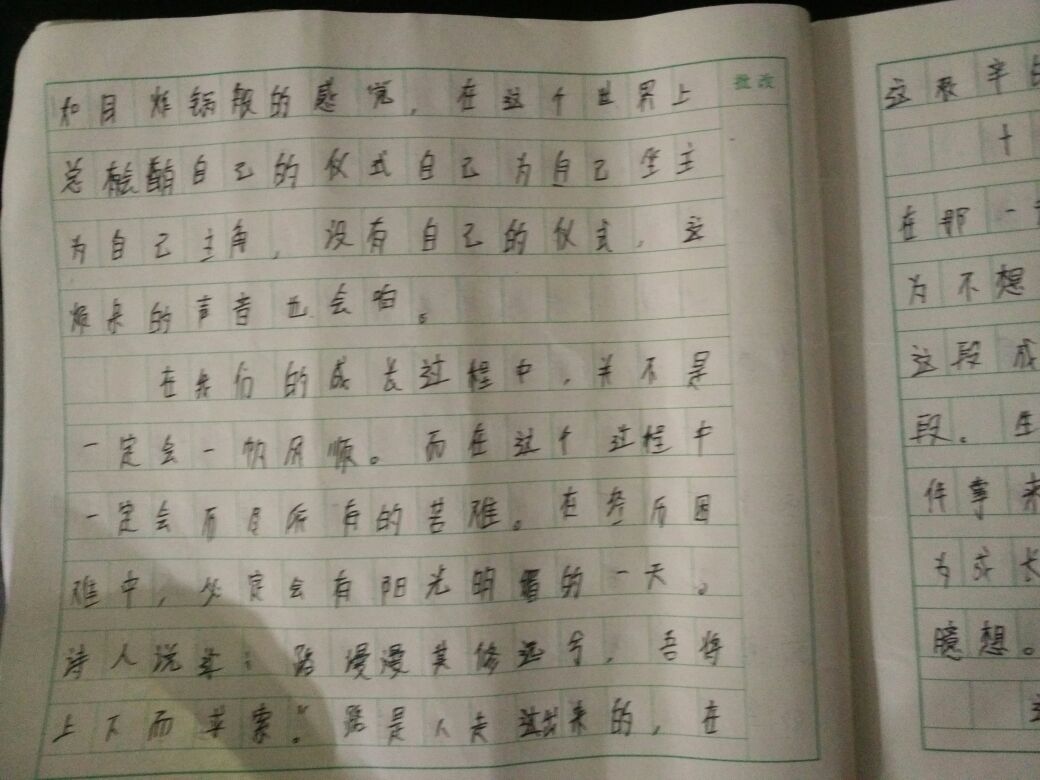 和目炸锅般的感觉，在这个世界上
总有会自己的仪式自己为自己坐主
为自己主角，没有自己的仪式，这
的声音也会
在我们的成长过程中，并不是
一定会一帆风顺。而在这个过程中
一定会而且所有的苦难。在参历困
难中，必定会有阳光明媚的一天。
诗人说过：路漫漫其修远兮，吾将
上下而求索。”路是人走过出来的，在
批改
这段辛
十
在那一
为不想
这段成
段。生
件事来
为成长
臆想。